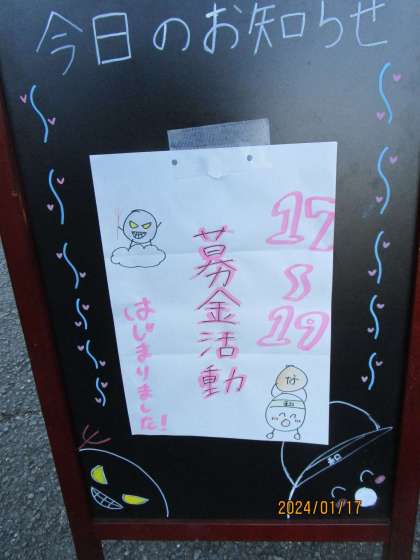 今日のお知らせ
17
〜
19
募金活動
はじまりました!
2024/01/17